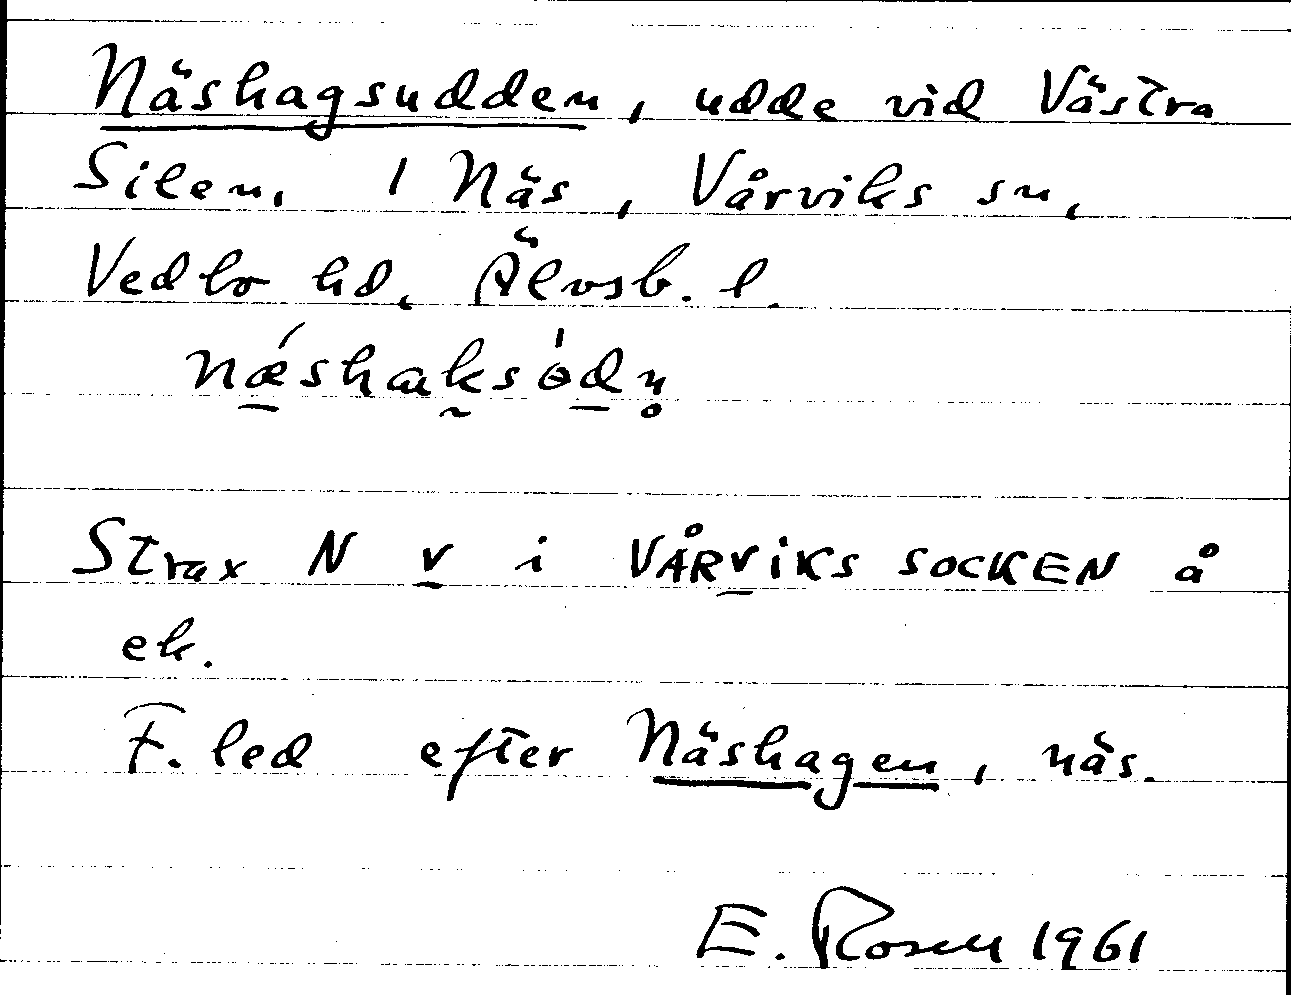 Näshagsudden, udde vid Västra
Silen, 1 Näs, Vårviks sn,
Vedbo hd, Älvsb. l.
nǽ̠shaksɵ̠̍dn̥
Strax N v i VÅRVIKS SOCKEN å
ek.
F. led efter Näshagen, näs.
E. Rosen 1961